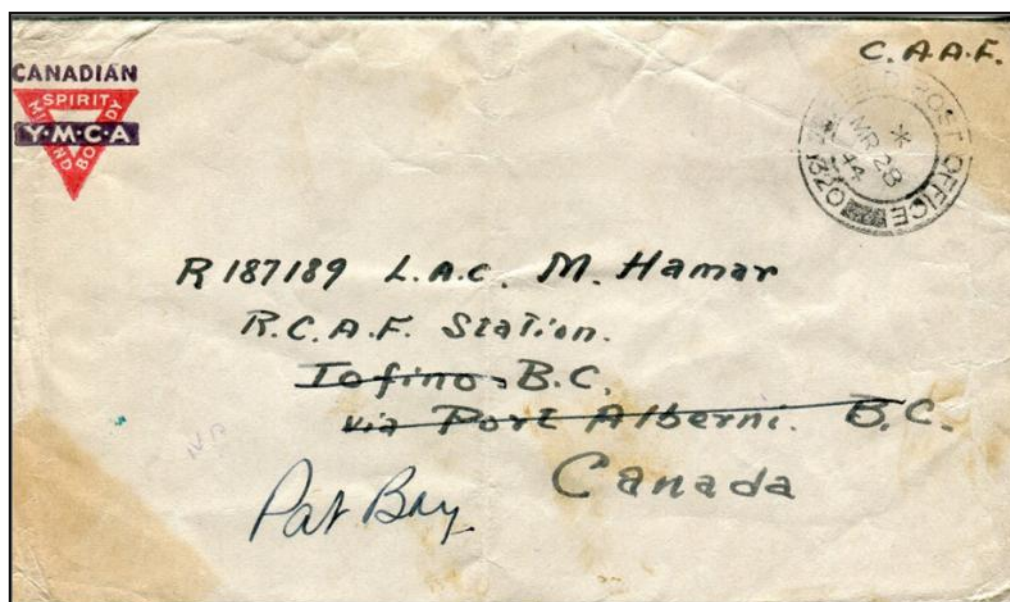 C.A.A.F.
CANADIAN
SPIRIT
MIND
BODY
Y·M·C·A
FIELD POST OFFICE
*
MR 28
44
1320
R187189 L.A.C. M. Hamar
R.C.A.F. Station.
Tofino. B.C.
via Port Alberni. B.C.
Canada
Pat Bay